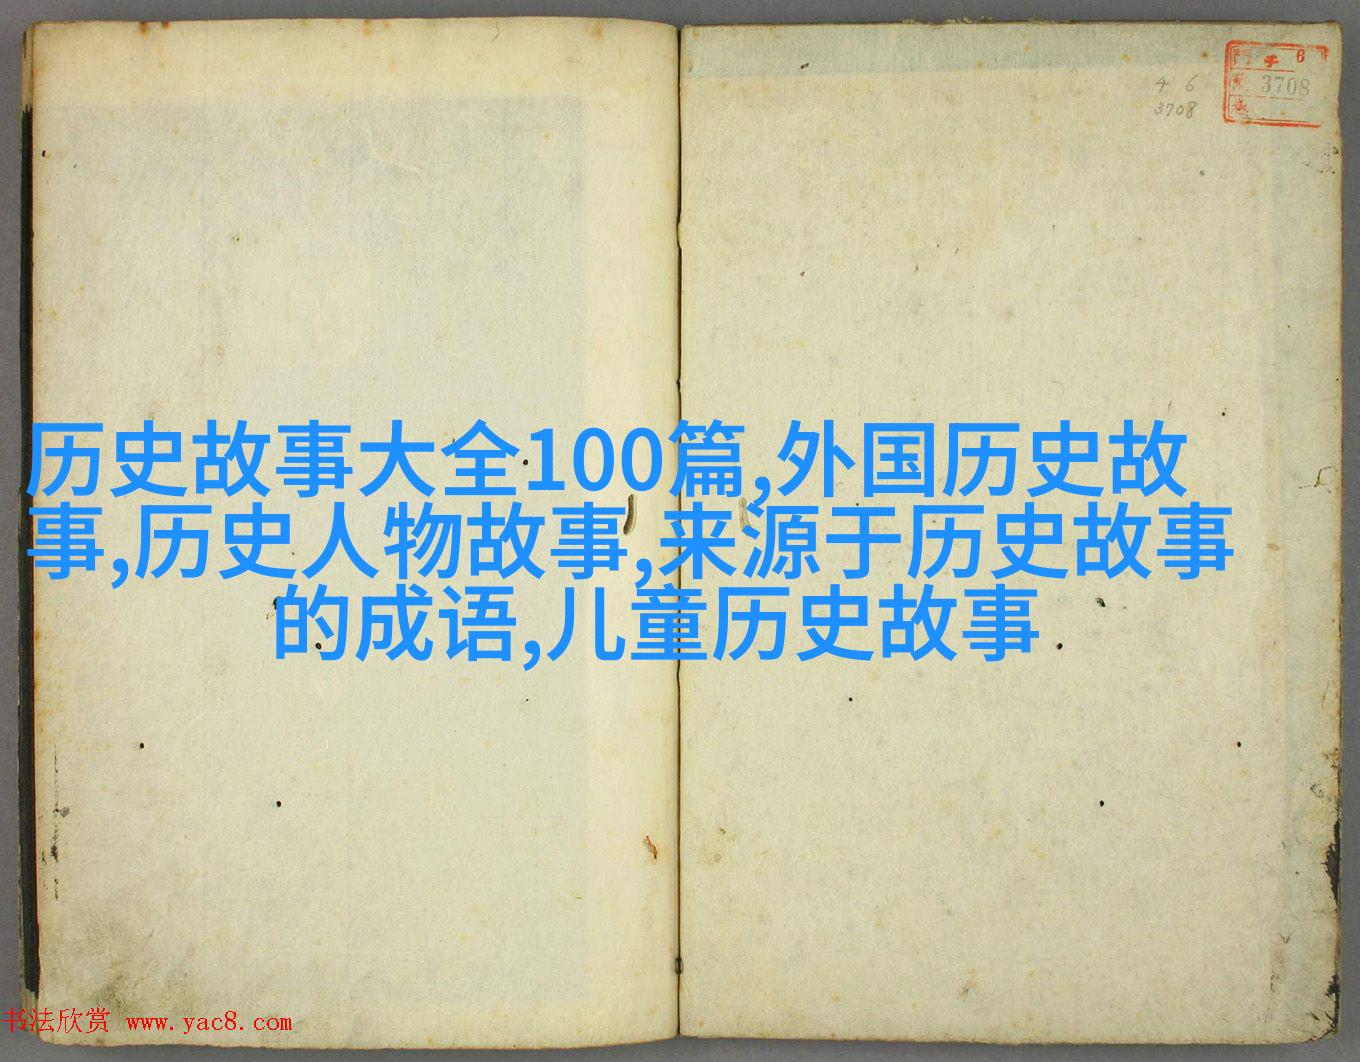 6
3708
4 6
3708
历史故事大全100篇,外国历史故
事,历史人物故事,来源于历史故事
的成语,儿童历史故事
书法欣赏 www.yac8.com